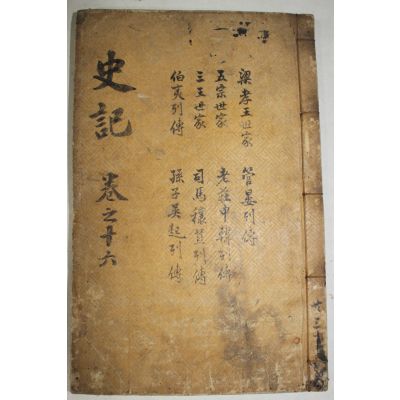 史記 卷之十六
梁孝王世家
五宗世家
三王世家
伯夷列傳
管晏列傳
老莊申韓列傳
司馬穰苴列傳
孫子吳起列傳